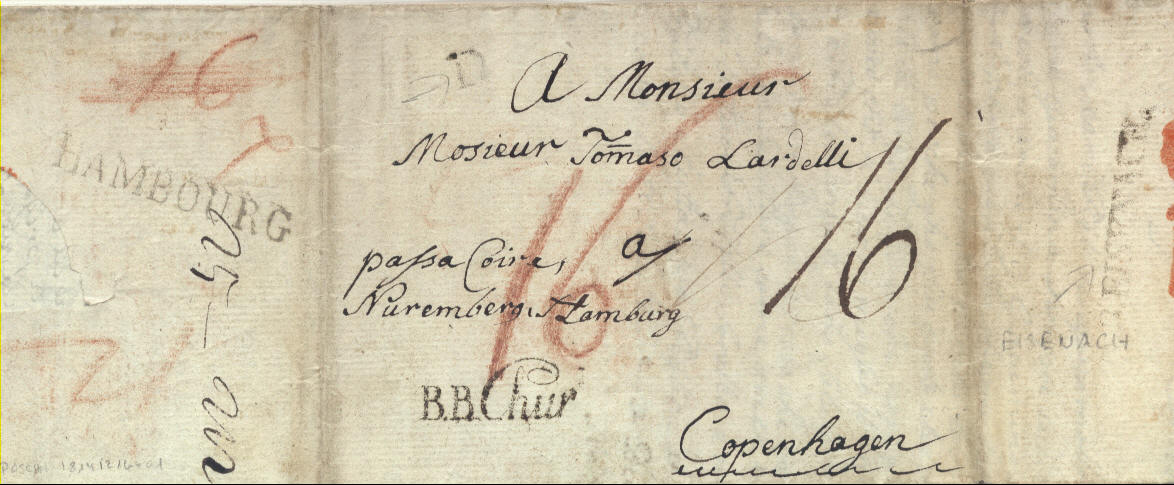 16
HAMBOURG
A Monsieur
Mosieur Tom̄aso Lardelli
passa Coire, a
Nuremberg, Hamburg
16
16
B.B. Chur
Copenhagen
EISENACH